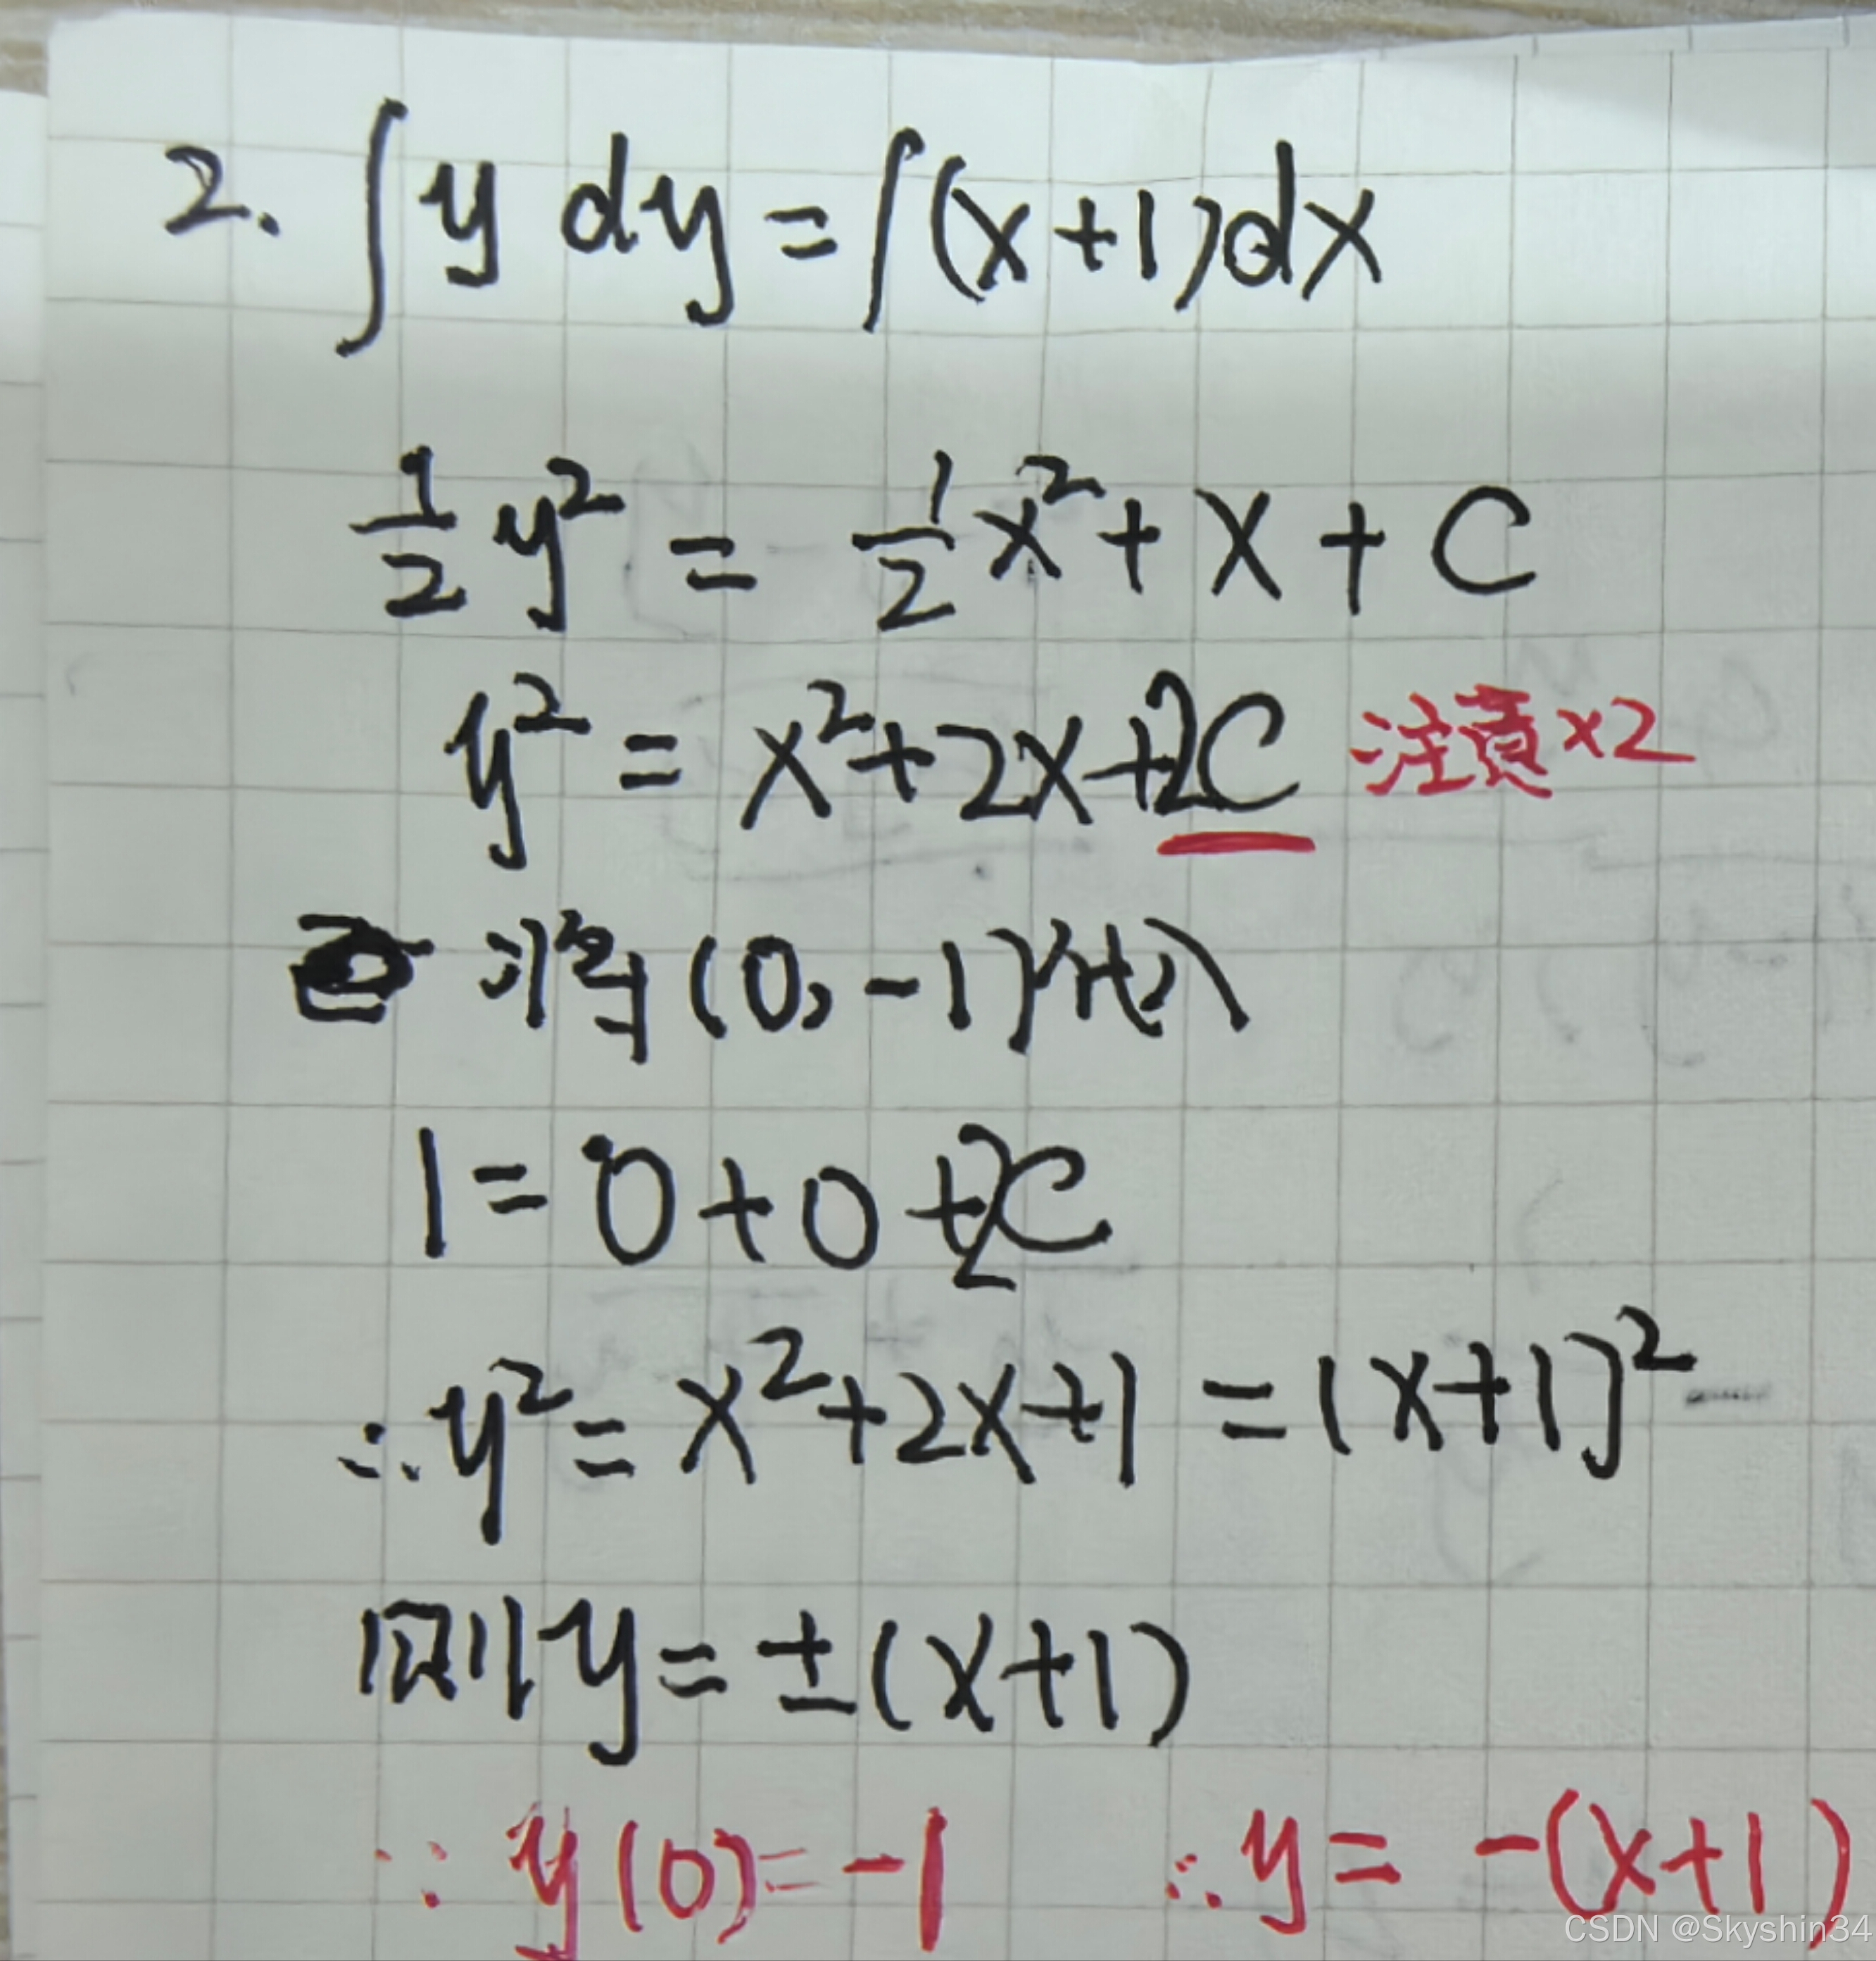 2. ∫ y dy = ∫(x+1)dx
1/2 y² = 1/2 x² + x + C
y² = x² + 2x + 2C 注意×2
将(0, -1)代入
1 = 0 + 0 + 2C
∴ y² = x² + 2x + 1 = (x+1)²
则 y = ±(x+1)
∵ y(0) = -1 ∴ y = -(x+1)
CSDN @Skyshin34